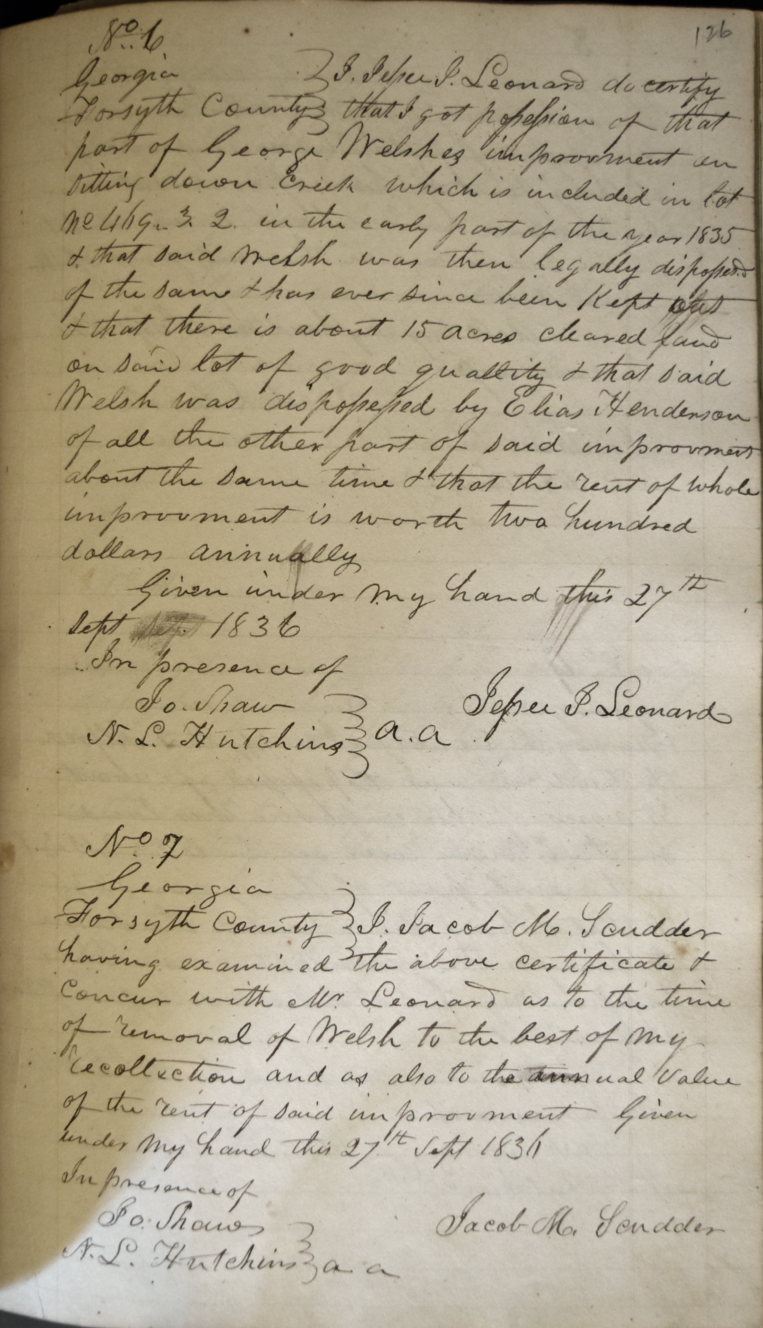 126
No. 6
Georgia } I. Jessee J. Leonard do certify
Forsyth County } that I got possession of that
part of George Welshes improvment on
sitting down Creek which is included in lot
in the early part of the year 1835
& that said Welsh was then legally disposesd
of the same & has ever since been Kept out
& that there is about 15 acres cleared land
on said lot of good quallity & that said
Welsh was dispossessed by Elias Henderson
of all the other part of said improvment
about the same time & that the rent of whole
improvment is worth two hundred
dollars annually
Given under my hand this 27th
Sept 1836
In presence of
Jo. Shaw
N. L. Hutchins } a. a
Jessee J. Leonard
No 7
Georgia
Forsyth County } I. Jacob M. Scudder
having examined the above certificate &
concur with Mr Leonard as to the time
of removal of Welsh to the best of my
recollection and as also to the annual value
of the rent of said improvment Given
under my hand this 27th Sept 1836
In presence of
Jo. Shaw
N. L. Hutchins } a a
Jacob M. Scudder